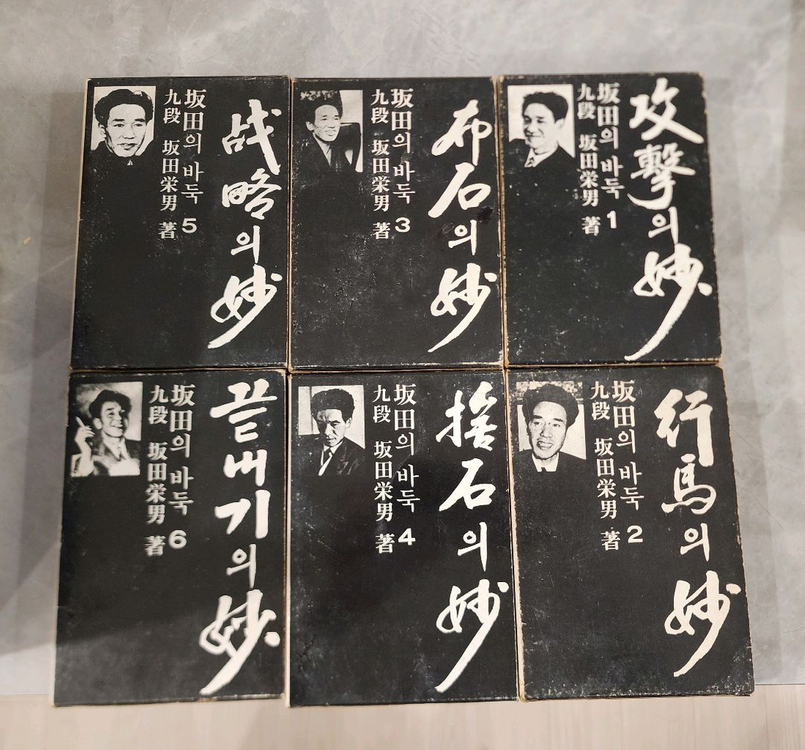 攻擊의 妙
坂田의 바둑 1
九段 坂田栄男 著
布石의 妙
坂田의 바둑 3
九段 坂田栄男 著
战略의 妙
坂田의 바둑 5
九段 坂田栄男 著
行馬의 妙
坂田의 바둑 2
九段 坂田栄男 著
捨石의 妙
坂田의 바둑 4
九段 坂田栄男 著
끝내기의 妙
坂田의 바둑 6
九段 坂田栄男 著